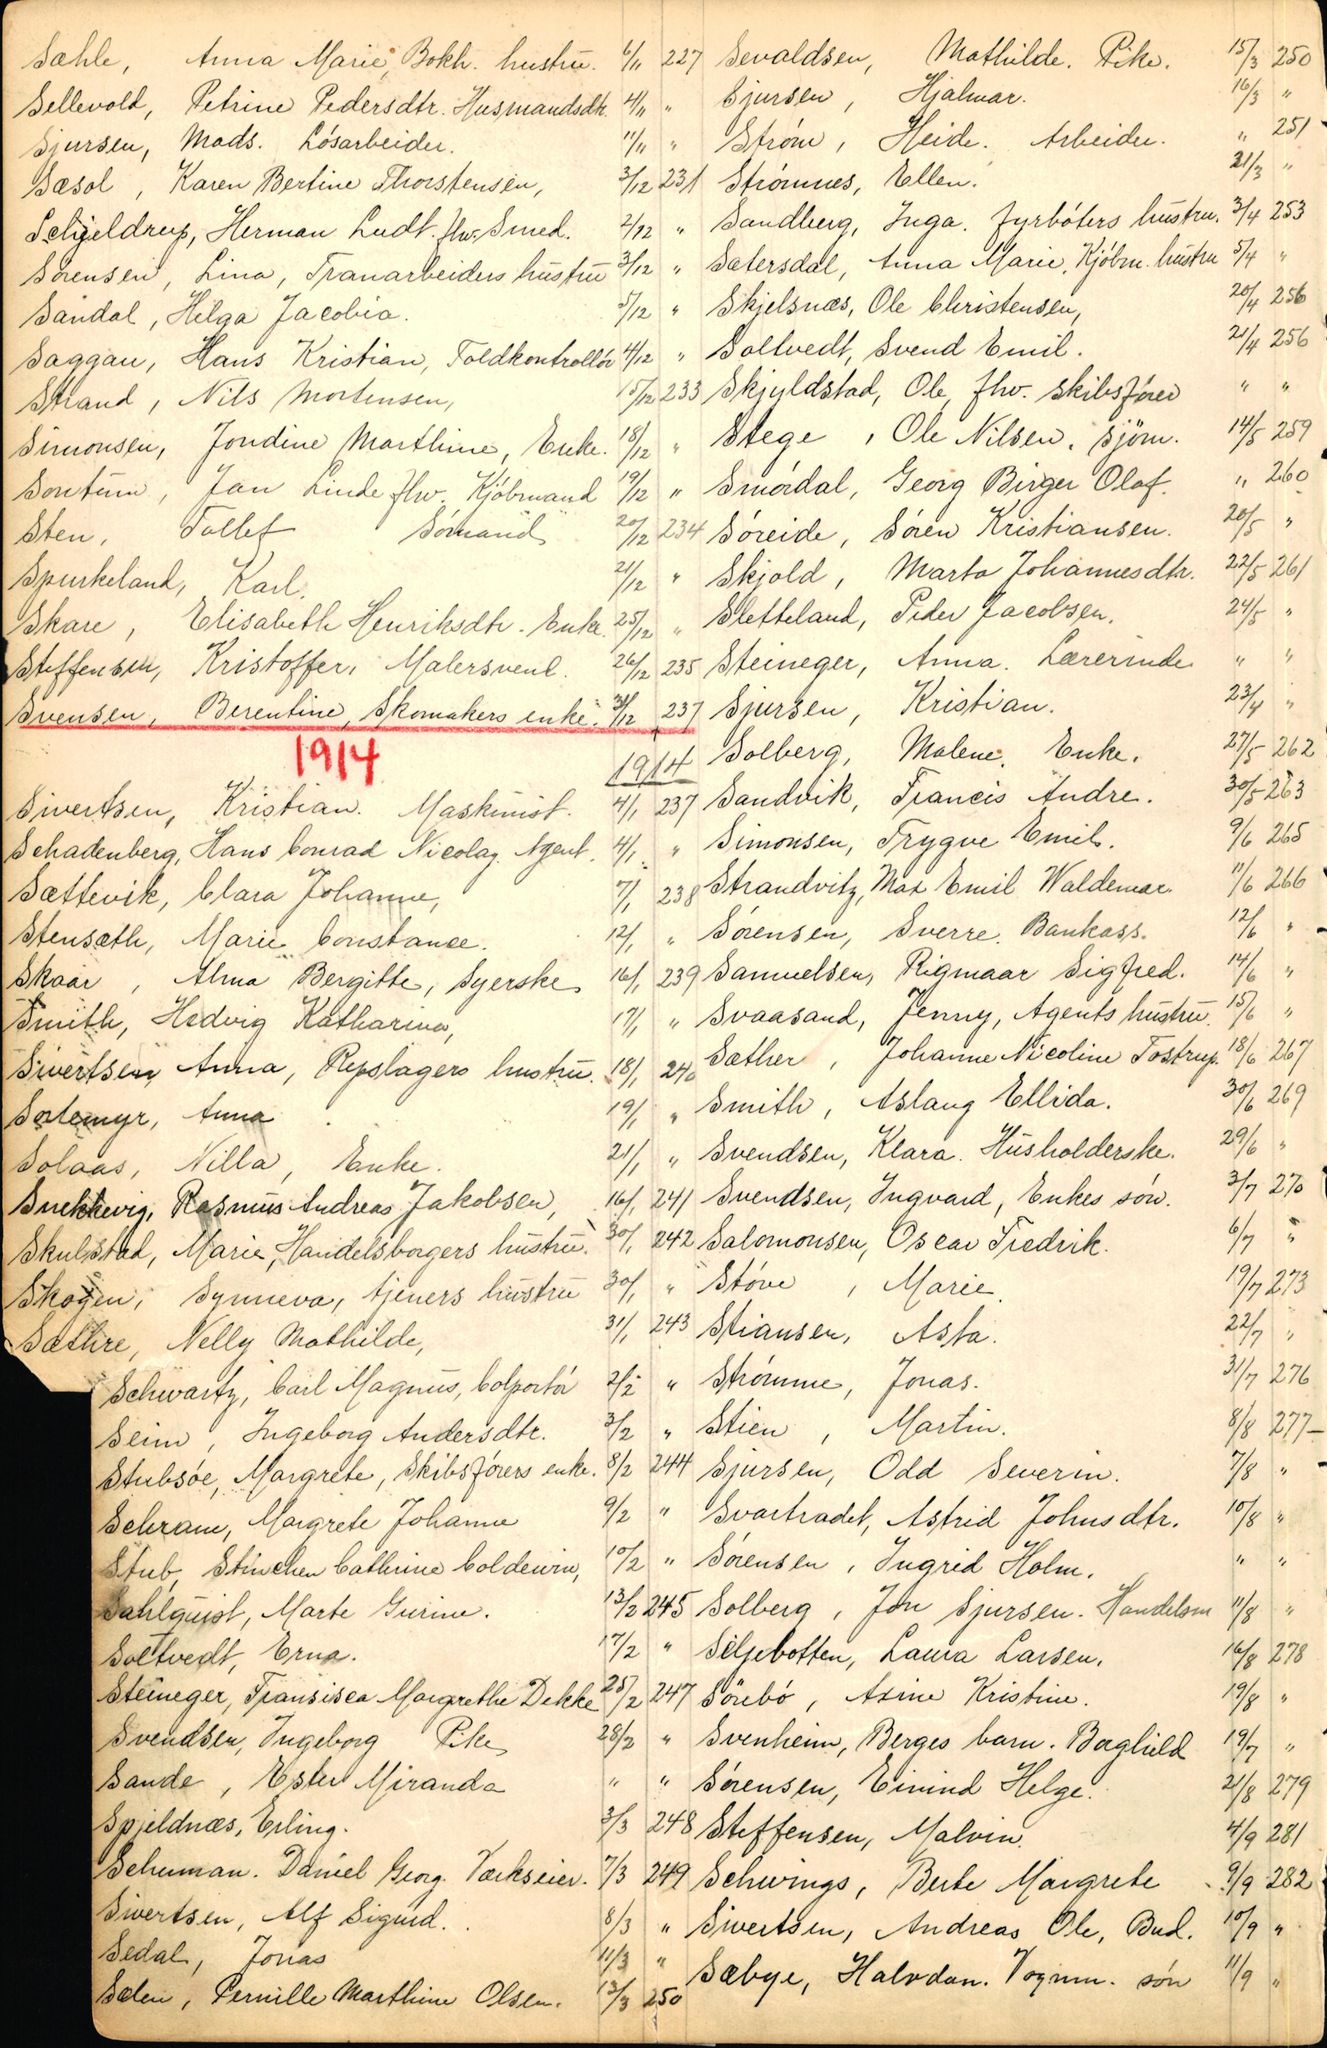 Sæhle, Anna Marie, Bokh. hustru. 6/11 227
Sellevold, Petrine Pedersdtr. Husmandsdtr. 4/11 "
Sjursen, Mads. Løsarbeider. 11/11 "
Sæsol, Karen Bertine Thorstensen, 3/12 231
Schjeldrup, Herman Ludt. fhv. Smed. 2/12 "
Sørensen, Lina, Tranarbeiders hustru 3/12 "
Sandal, Helga Jacobia. 5/12 "
Saggau, Hans Kristian, Toldkontrollør 4/12 "
Strand, Nils Mortensen, 15/12 233
Simonsen, Jondine Marthine, Enke. 18/12 "
Sontum, Jan Linde fhv. Kjøbmand 19/12 "
Sten, Tollef Sømand 20/12 234
Spurkeland, Karl. 21/12 "
Skare, Elisabeth Henriksdtr. Enke. 25/12 "
Steffensen, Kristoffer, Malersvend. 26/12 235
Svensen, Berentine, Skomakers enke. 31/12 237
1914
1914
Sivertsen, Kristian. Maskinist. 4/1 237
Schadenberg, Hans Conrad Nicolay. Agent. 4/1 "
Sættevik, Clara Johanne, 7/1 238
Stensæth, Marie Constance. 12/1 "
Skaar, Alma Bergitte, Syerske 16/1 239
Smith, Hedvig Katharina, 17/1 "
Sivertsen, Anna, Repslagers hustru. 18/1 240
Sortemyr, Anna 19/1 "
Solaas, Nilla, Enke. 21/1 "
Snekkevig, Rasmus Andreas Jakobsen, 16/1 241
Skulstad, Marie, Handelsborgers hustru. 30/1 242
Skogen, Synneva, tjeners hustru 30/1 "
Sæthre, Nelly Mathilde, 31/1 243
Schwartz, Carl Magnus, Colportør 2/2 "
Seim, Ingeborg Andersdtr. 3/2 "
Stubsøe, Margrete, Skibsførers enke. 8/2 244
Schram, Margrete Johanne 9/2 "
Stub, Stinchen Cathrine Coldevin, 10/2 "
Sahlquist, Marte Gurine. 13/2 245
Soltvedt, Erna. 17/2 "
Steineger, Fransisca Margrethe Dekke 25/2 247
Svendsen, Ingeborg Pike 28/2 "
Sande, Ester Miranda " "
Spjeldnæs, Erling. 3/3 248
Schuman. Daniel Georg. Værkseier. 7/3 249
Sivertsen, Alf Sigurd. 8/3 "
Sedal, Jonas 11/3 "
Sælen, Pernille Marthine Olsen. 13/3 250
Sevaldsen, Mathilde. Pike. 15/3 250
Sjursen, Hjalmar. 16/3 "
Strøm, Heide. Arbeider. " 251
Strømnes, Ellen. 21/3 "
Sandberg, Inga. fyrbøters hustru. 3/4 253
Sætersdal, Anna Marie, Kjøbm. hustru 5/4 "
Skjelsnæs, Ole Christensen, 20/4 256
Soltvedt, Svend Emil. 21/4 256
Skjyldstad, Ole, fhv. skibsfører " "
Stege, Ole Nilsen. sjøm. 14/5 259
Smørdal, Georg Birger Olaf. " 260
Søreide, Søren Kristiansen. 20/5 "
Skjold, Marta Johannesdtr. 22/5 261
Sletteland, Peder Jacobsen. 24/5 "
Steineger, Anna. Lærerinde " "
Sjursen, Kristian. 23/4 "
Solberg, Malene. Enke. 27/5 262
Sandvik, Francis Andre. 30/5 263
Simonsen, Trygve Emil. 9/6 265
Strandvitz, Max Emil Waldemar. 11/6 266
Sørensen, Sverre. Bankass. 12/6 "
Samuelsen, Rigmaar Sigfred. 14/6 "
Svaasand, Jenny, Agents hustru. 15/6 "
Sæther, Johanne Nicoline Tostrup. 18/6 267
Smith, Aslaug Ellida. 30/6 269
Svendsen, Klara. Husholderske. 29/6 "
Svendsen, Ingvard, Enkes søn. 3/7 270
Salomonsen, Oscar Fredrik. 6/7 "
Støve, Marie. 19/7 273
Stiansen, Asta. 22/7 "
Strømme, Jonas. 31/7 276
Stien, Martin. 8/8 277
Sjursen, Odd Severin. 7/8 "
Svartradet, Astrid Johnsdtr. 10/8 "
Sørensen, Ingrid Holm. " "
Solberg, Jon Sjursen. Handelsm 11/8 "
Seljebotten, Laura Larsen. 16/8 278
Sörebø, Axine Kristine. 19/8 "
Svenheim, Berges barn. Borghild 19/7 "
Sørensen, Eivind Helge. 21/8 279
Steffensen, Malvin. 4/9 281
Schwings, Berte Margrete 9/9 282
Sivertsen, Andreas Ole, Bud. 10/9 "
Sæbye, Halvdan. Vognm. søn 11/9 "